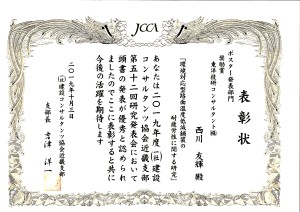 JCCA
表彰状
ポスター発表部門
奨励賞
東洋技研コンサルタント㈱
西川 友輝 殿
「環境対応型路面温度低減舗装の
耐疲労性に関する研究」
あなたは二〇一九年度(一社)建設
コンサルタンツ協会近畿支部
第五十二回研究発表会において
頭書の発表が優秀と認められ
ましたのでここに表彰すると共に
今後の活躍を期待します
二〇一九年十月三日
(一社)建設コンサルタンツ協会近畿支部
支部長 吉津 洋一